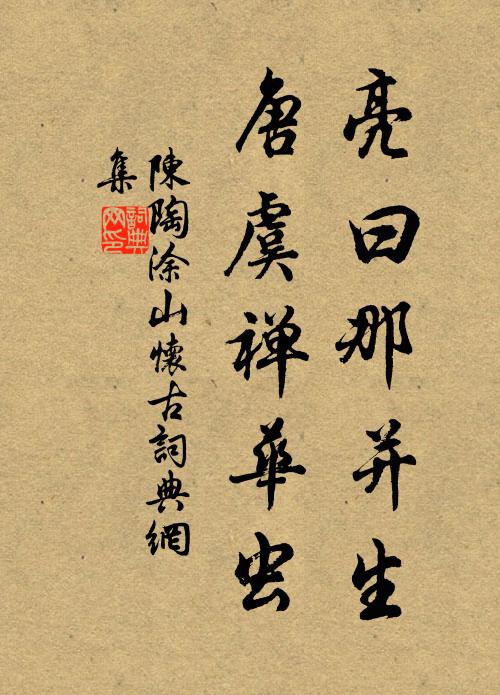 亮曰那并生
唐虞禅華虫
陳陶涂山懷古詞典網
集
詞典
网印